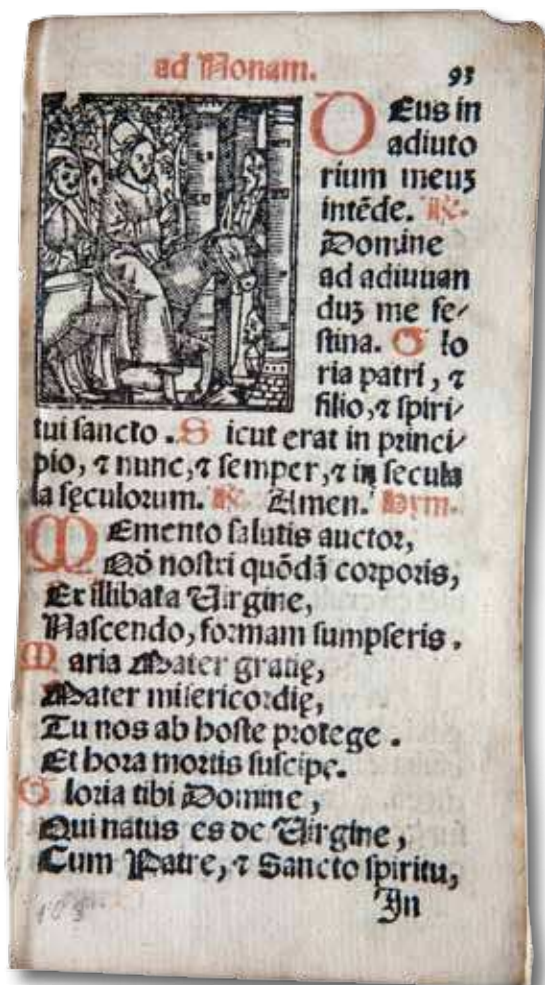 ad Nonam. 93
DEus in
adiuto
rium meuʒ
intēde. ℟.
Domine
ad adiuuan
duʒ me fe⸗
stina. G lo
ria patri, ⁊
filio, ⁊ spiri⸗
tui sancto. S icut erat in princi⸗
pio, ⁊ nunc, ⁊ semper, ⁊ in secula
la sęculorum. ℟. Amen. Hym.
MEmento salutis auctor,
Qō nostri quōdā corporis,
Ex illibata Uirgine,
Nascendo, formam sumpseris.
M aria Mater gratię,
Mater misericordię,
Tu nos ab hoste protege.
Et hora mortis suscipe.
G loria tibi Domine,
Qui natus es de Uirgine,
Cum Patre, ⁊ Sancto spiritu,
In